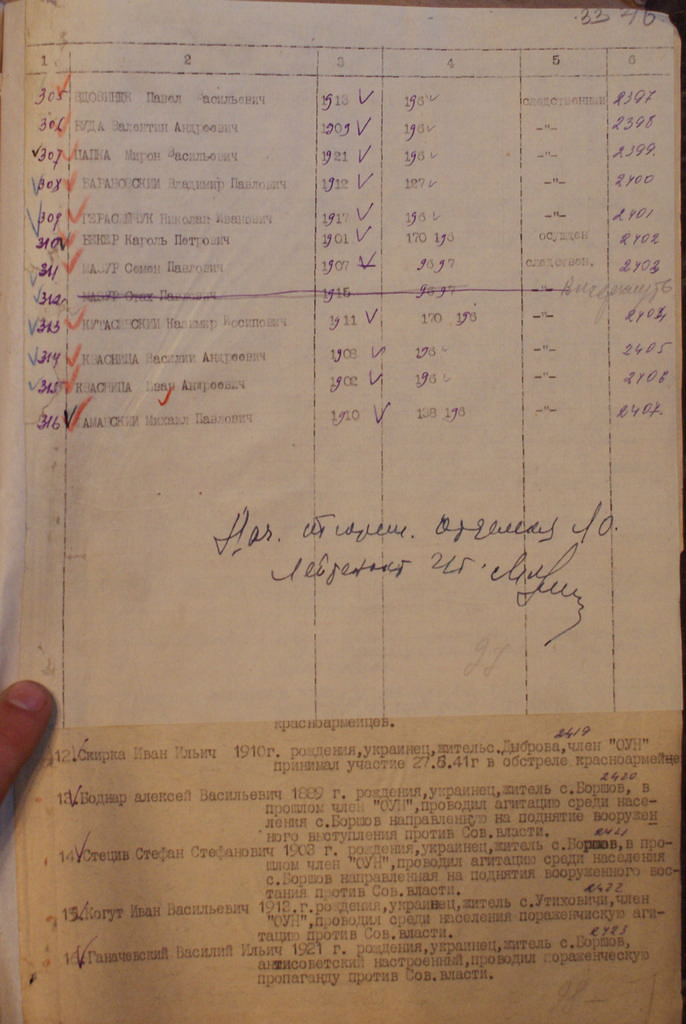 33 46
1 2 3 4 5 6
305 ВДОВИНЕЦ Павел Васильевич 1913 196 следственный 2397
306 БУДА Валентин Андреевич 1909 196 -"- 2398
307 ЦАПКА Мирон Васильович 1921 196 -"- 2399.
308 БАРАНОВСКИЙ Владимир Павлович 1912 127 -"- 2400
309 ГЕРАСИМЧУК Николай Иванович 1917 196 -"- 2401
310 БЕКЕР Кароль Петрович 1901 170 196 осужден 2402
311 МАЗУР Семен Павлович 1907 9697 следствен. 2403
312 МАЗУР Стах Павлович 1915 9697 -"-
313 Казимир Иосипович 1911 170 196 -"- 2404
314 КВАСНИЦА Василий Андреевич 1908 196 -"- 2405
315 КВАСНИЦА Иван Андреевич 1902 196 -"- 2406
316 ГАМАНСКИЙ Михаил Павлович 1910 138 196 -"- 2407.
Нач. тюрем. отдела ЛО.
Лейтенант
красноармейцев.
2419
12. Скирка Иван Ильич 1910г. рождения,украинец,жительс.Дыброва,член "ОУН"
принимал участие 27.6.41г в обстреле красноармейце
2420
13. Боднар алексей Васильевич 1889 г. рождения,украинец,житель с.Боршов, в
прошлом член "ОУН",проводил агитацию среди насе-
ления с.Боршов направленную на поднятие вооружен
ного выступления против Сов.власти.
2421
14. Стецив Стефан Стефанович 1903 г. рождения,украинец,житель с.Боршов,в про-
шлом член "ОУН",проводил агитацию среди населения
с.Боршов направленная на поднятия вооруженного вос-
тания против Сов.власти.
2422
15. Когут Иван Васильевич 1913.г.рождения,украинец,житель с.Утиховичи,член
"ОУН",проводил среди населения пораженчискую аги-
тацию против Сов.власти.
2423
16. Ганачевский Василий Ильич 1921 г. рождения,украинец,житель с.Боршов,
антисоветский настроенный,проводил пораженческую
пропаганду против Сов.власти.